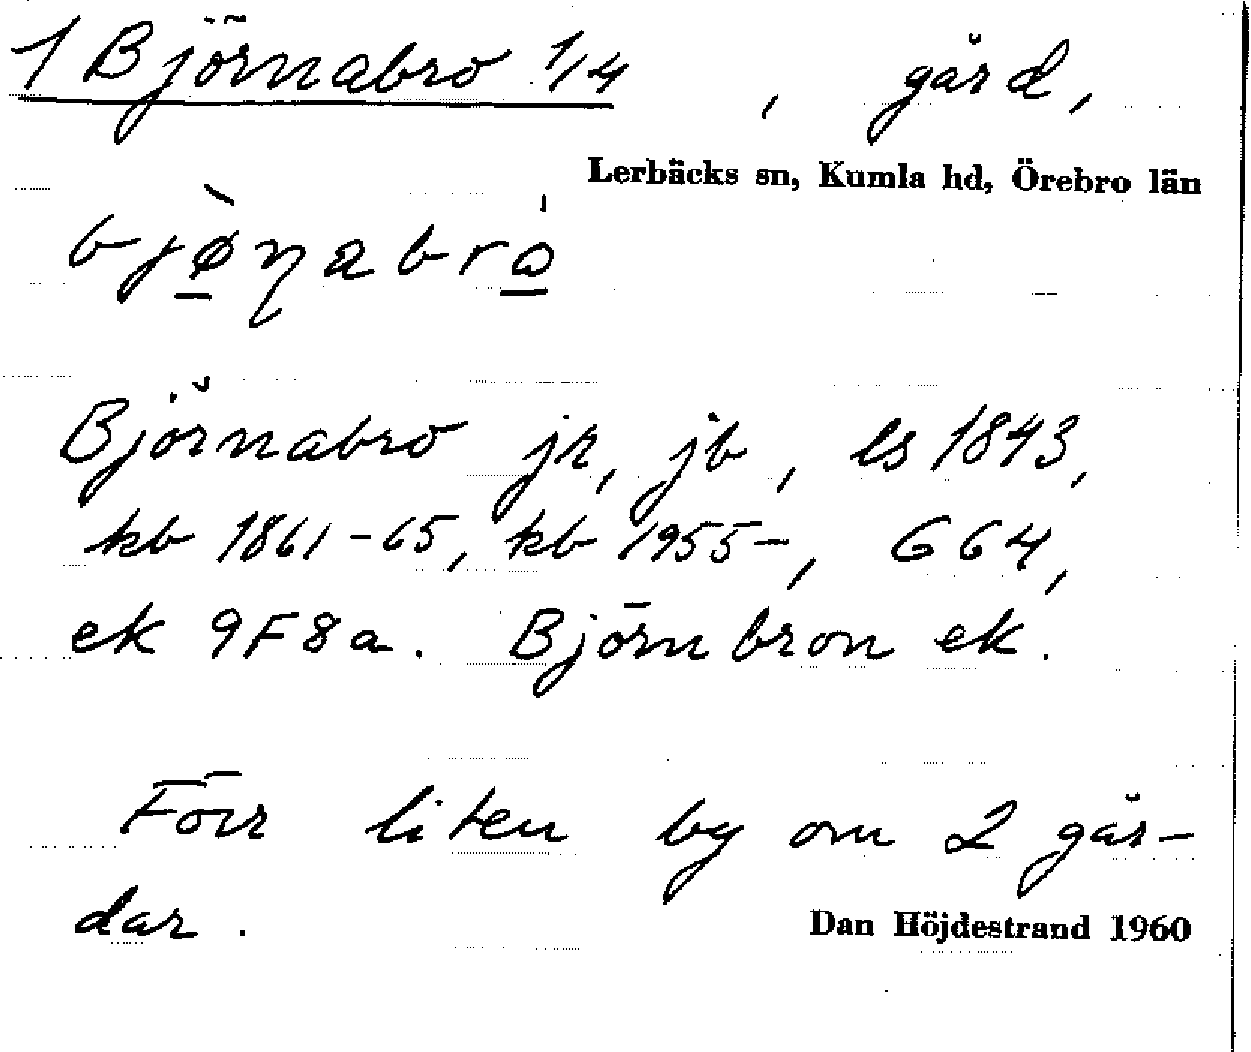 1 Björnabro 1/4 , gård,
Lerbäcks sn, Kumla hd, Örebro län
bjø̀ṇabrω
Björnabro jr, jb, ls 1843,
kb 1861-65, kb 1955-, G 64,
ek 9F8a. Björnbron ek.
Förr liten by om 2 går-
dar.
Dan Höjdestrand 1960